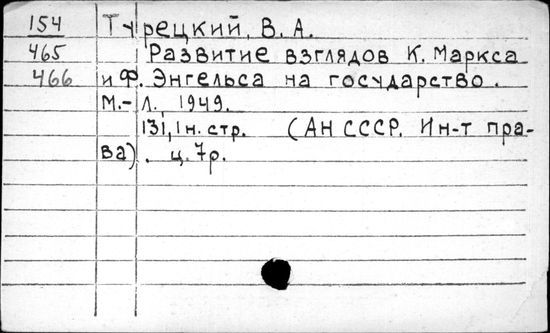 154 Турецкий, В. А.
465 Развитие взглядов К. Маркса
466 и Ф. Энгельса на государство.
М.-Л. 1949.
131, 1 н. стр. (АН СССР. Ин-т пра-
ва). ц. 7р.